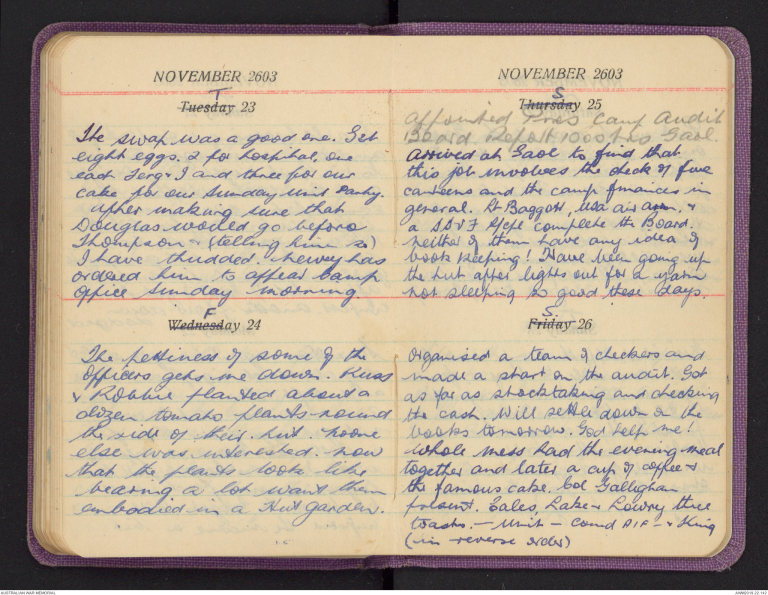 NOVEMBER 2603
T
Tuesday 23
The swap was a good one. Get
eight eggs. 2 for hospital, one
each Ferg & I and three for our
cake for our Sunday Unit Party.
After making sure that
Douglas would go before
Thompson & (telling him so)
I have thudded. Newey has
ordered him to appear Camp
Office Sunday morning.
F
Wednesday 24
The pettiness of some of the
Officers gets me down. Russ
& Robbie planted about a
dozen tomato plants round
the side of their hut. Noone
else was interested. Now
that the plants look like
bearing a lot want them
embodied in a Hut garden.
NOVEMBER 2603
S
Thursday 25
Appointed Pres Camp Audit
Board Report 1000 hrs Gaol
Arrived at Gaol to find that
this job involves the check of five
canteens and the camp finances in
general. Lt Baggott, USA air arm, &
a Offr complete the Board.
neither of them have any idea of
book keeping! Have been going up
the hut after lights out for a yarn
not sleeping so good these days.
S.
Friday 26
Organised a team of checkers and
made a start on the audit. Got
as far as stocktaking and checking
the cash. Will settle down on the
books tomorrow. God help me!
Whole mess had the evening meal
together and later a cup of coffee &
the famous cake. Col Galleghan
present. Eales, Lake & Lowry three
toasts. — Unit — Comd AIF — & King
(in reverse order)
AUSTRALIAN WAR MEMORIAL